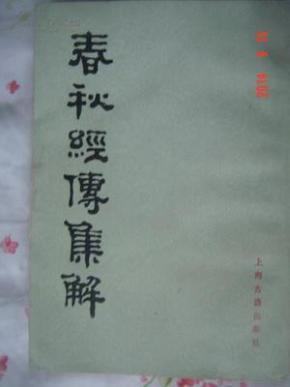 春秋經傳集解
上海古籍出版社